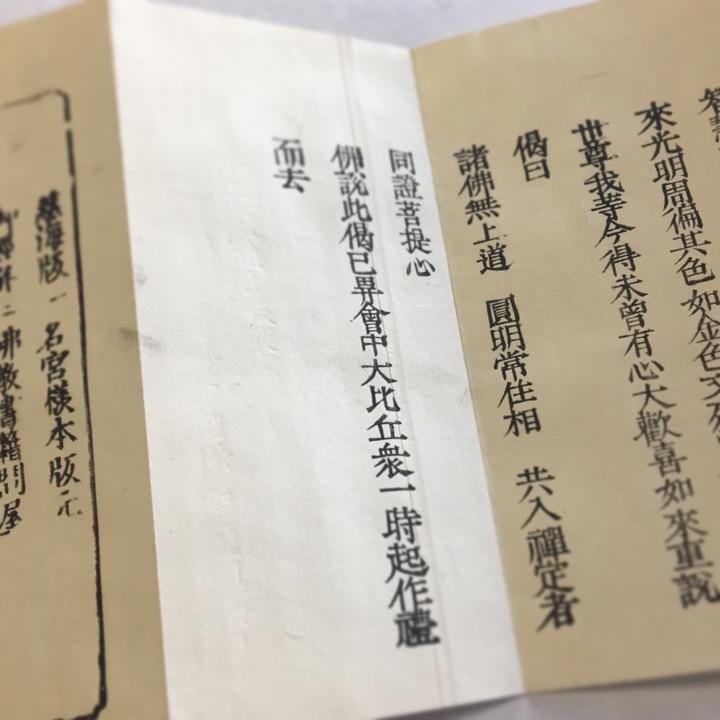 來光明周徧其色如金色
世尊我等今得未曾有心大歡喜如來重說
偈曰
諸佛無上道 圓明常住相 共入禪定者
同證菩提心
佛說此偈已畢會中大比丘衆一時起作禮
而去
海版一名宮様本版元
佛教書籍問屋